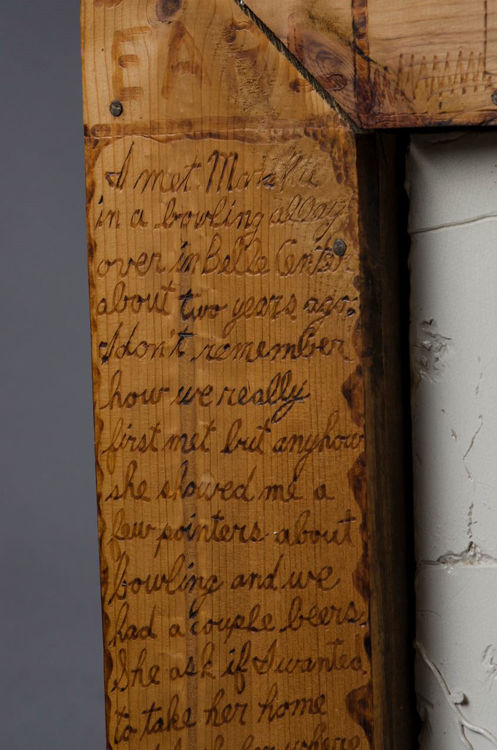 I met
in a bowling alley
over in Belle Center
about two years ago.
I don't remember
how we really
first met but anyhow
she showed me a
few pointers about
bowling and we
had a couple beers.
She ask if I wanted
to take her home
where